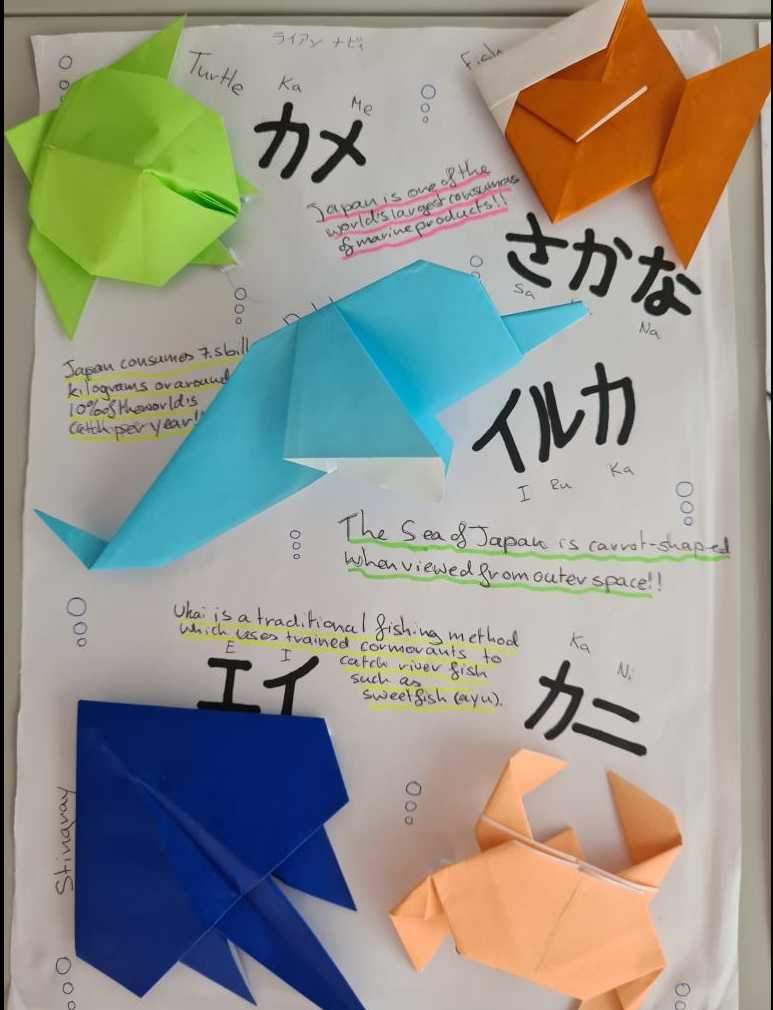 ライアン ナビィ
Turtle
Ka
Me
カメ
Japan is one of the
world's largest consumers
of marine products!!
さかな
Sa
Na
Japan consumes 7.5 bill
kilograms or around
10% of the world's
catch per year!!
イルカ
I Ru Ka
The Sea of Japan is carrot-shaped
when viewed from outer space!!
Ukai is a traditional fishing method
which uses trained cormorants to
catch river fish
such as
sweetfish (ayu).
E I
エイ
Ka
Ni
カニ
Stingray